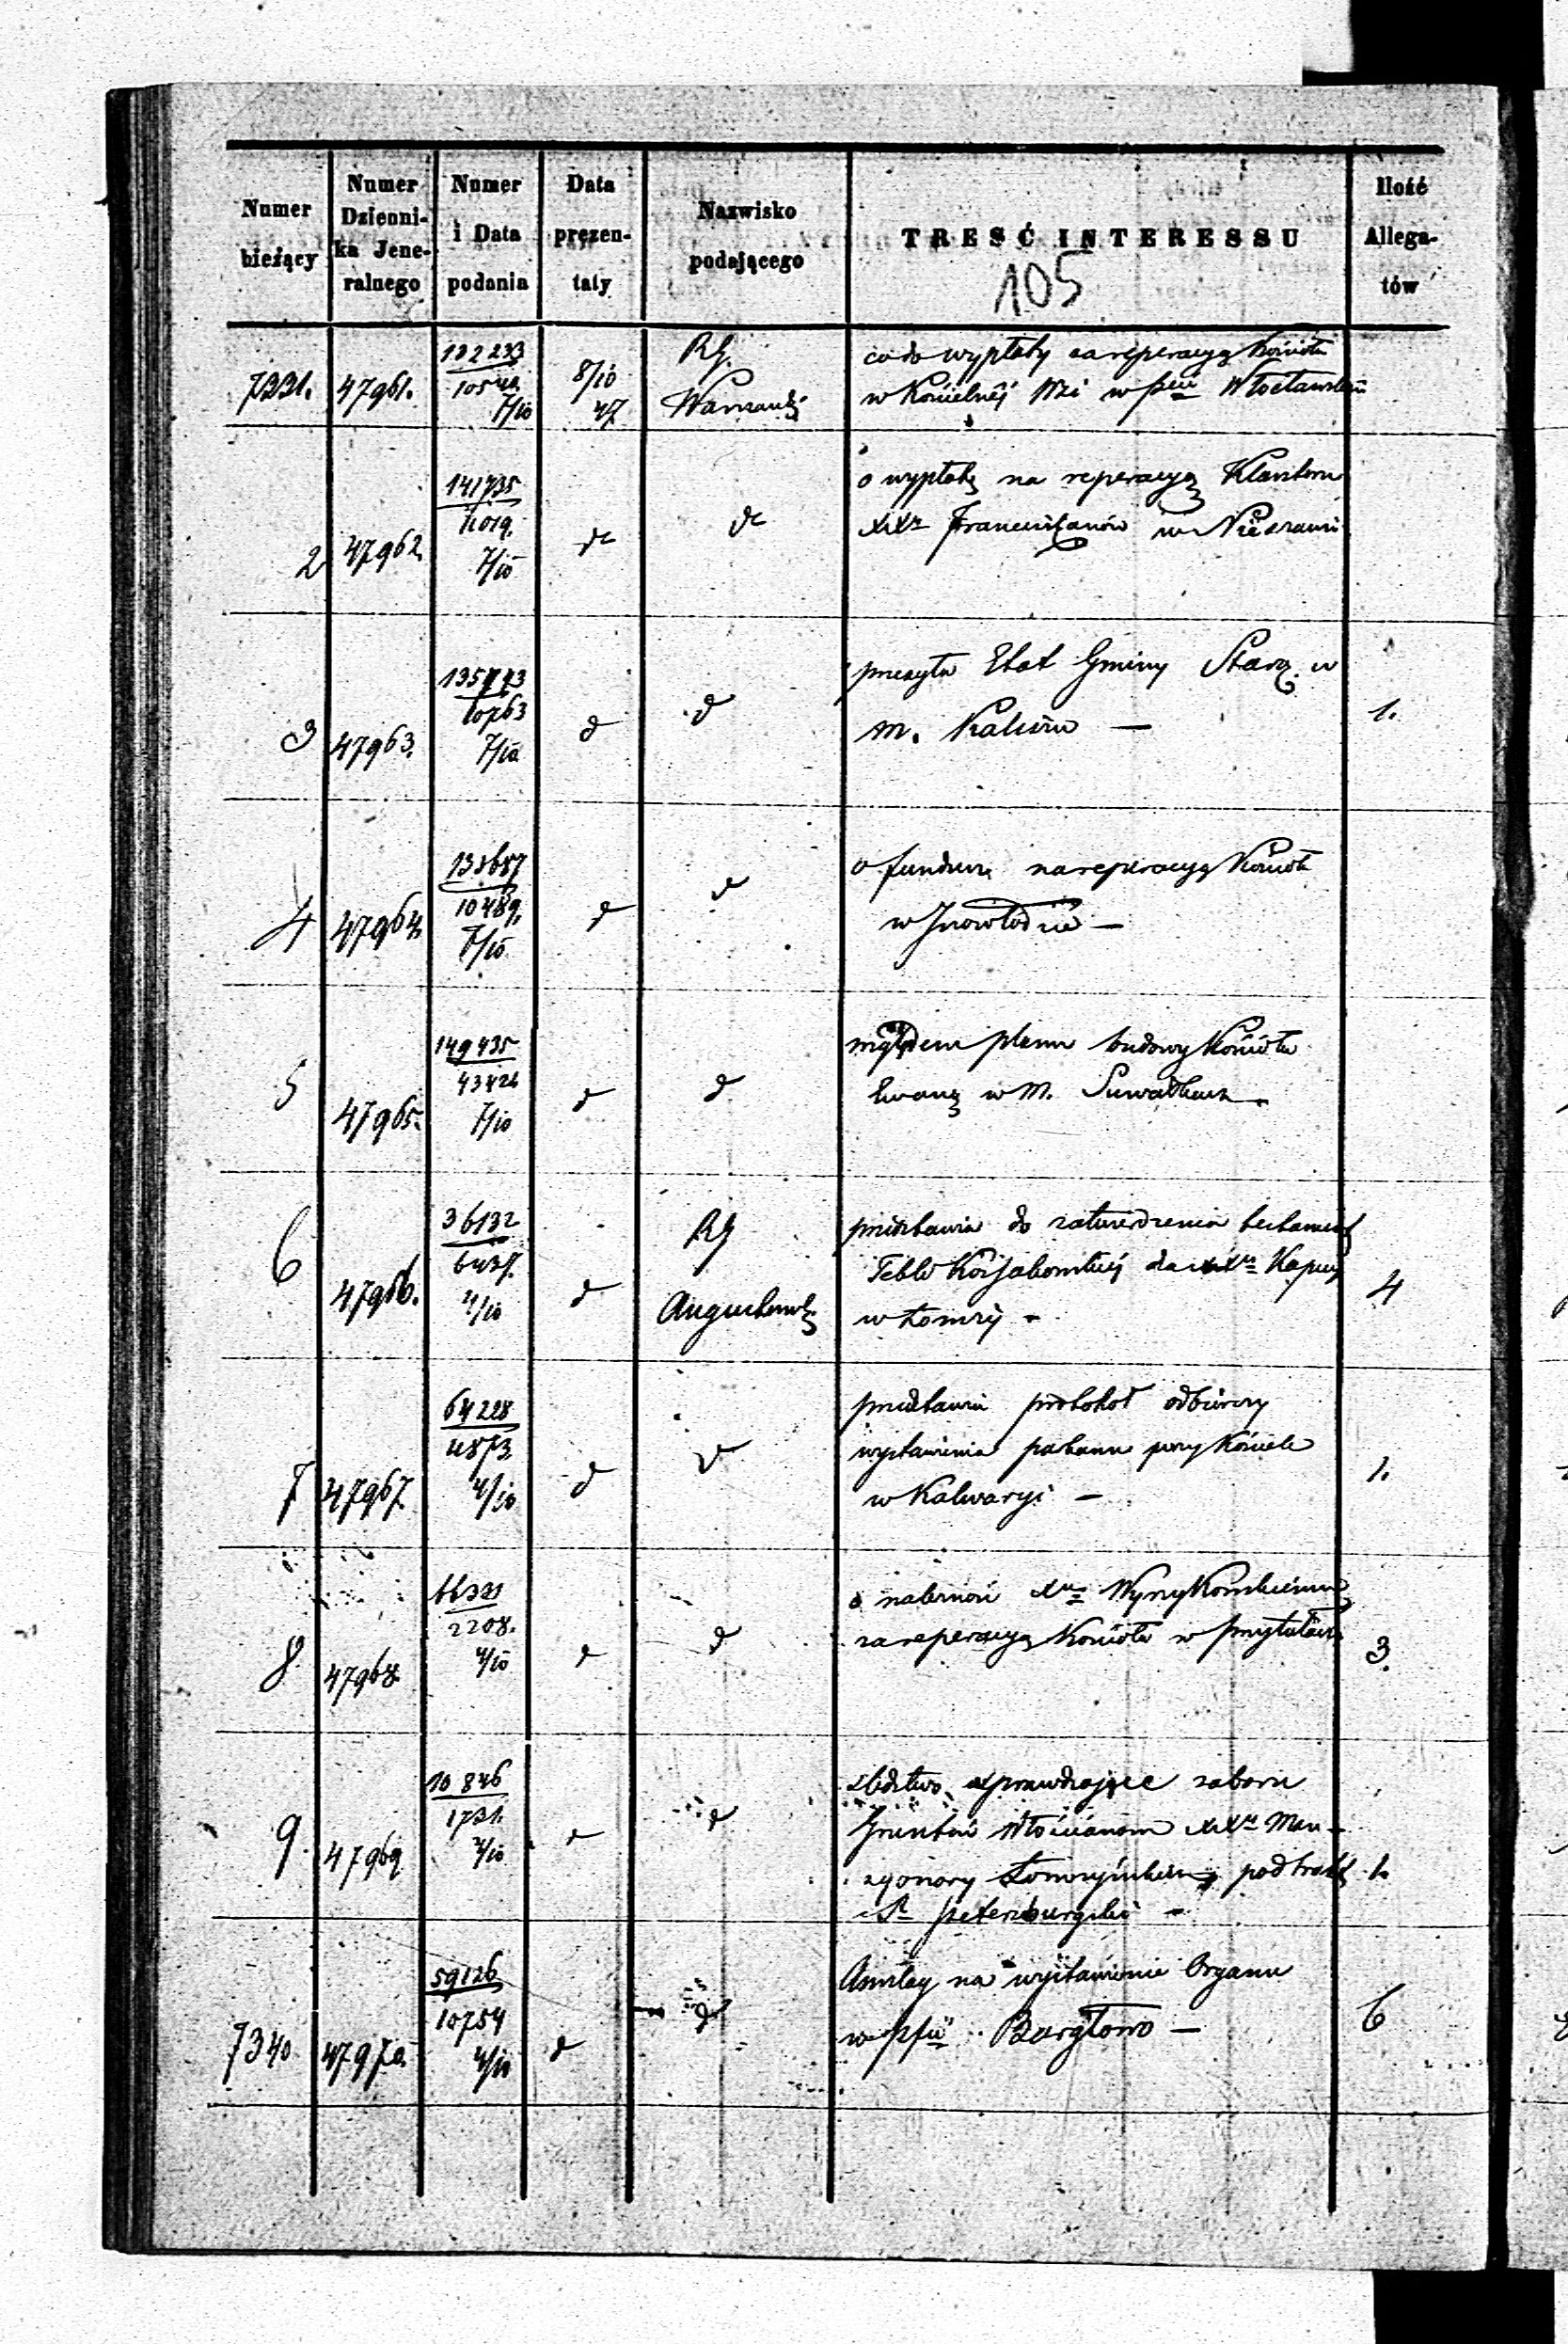 Numer bieżący
Numer Dzienni-ka Jene-ralnego
Numer i Data podania
Data prezen-taty
Nazwisko podającego
TREŚĆ INTERESSU
Ilość Allega-tów
105
7331. 47961. 182233 7/10 8/10 47 RG. Warszawski
co do wypłaty za reperacyą Kościoła
w Kościelnéj Wsi w pcie Włocławskim
2 47962. 141735 11019. 7/10 dto dto
o wypłatę na reperacyą Klasztoru
XXów Franciszkanów w Nieszawie
3 47963. 10763 7/10 d d 1.
przesyła Etat Gminy Staroz. w
m. Kaliszu —
4 47964. 10489. 7/10 d d
o fundusz na reperacyą Kościoła
w Inowłodzie —
5 47965. 149435 43426 7/10 d d
względem planu budowy Kościoła
Ewang w M. Suwałkach.
6 47966. 36132 4/10 d RG Augustowski 4
przedstawia do zatwierdzenia testament
Tekli dla XXów Kapuc
w Łomży -
7 47967. 64228 4873. 4/10 d d 1.
przedstawia protokół odbiorczy
wystawienia parkanu przy Kościele
w Kalwaryi —
8 47968. 2208. 4/10 d d 3.
o należność Xu Wyrzykowskiemu
za reperacyą Kościoła w Przytułach
9. 47969 10846 1731. 4/10 d d 1.
śledztwo sprawdzające zaboru
Gruntów Włościanom XXów Man-
syonarzy Łomżyńskich pod trakt
St Petersburgski -
7340 47970. 59126 10754 4/10 d d 6
Anszlag na wystawienie Organu
w Bargłowo —